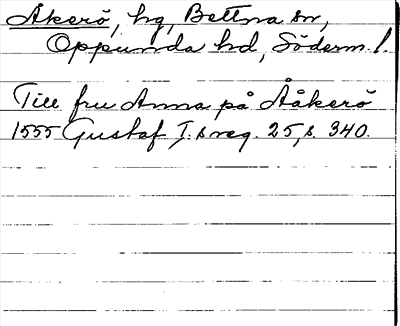 Åkerö, hg, Bettna sn,
Oppunda hd, Söderm. l.
Till fru Anna på Ååkerö
1555 Gustaf I:s reg. 25, s. 340.